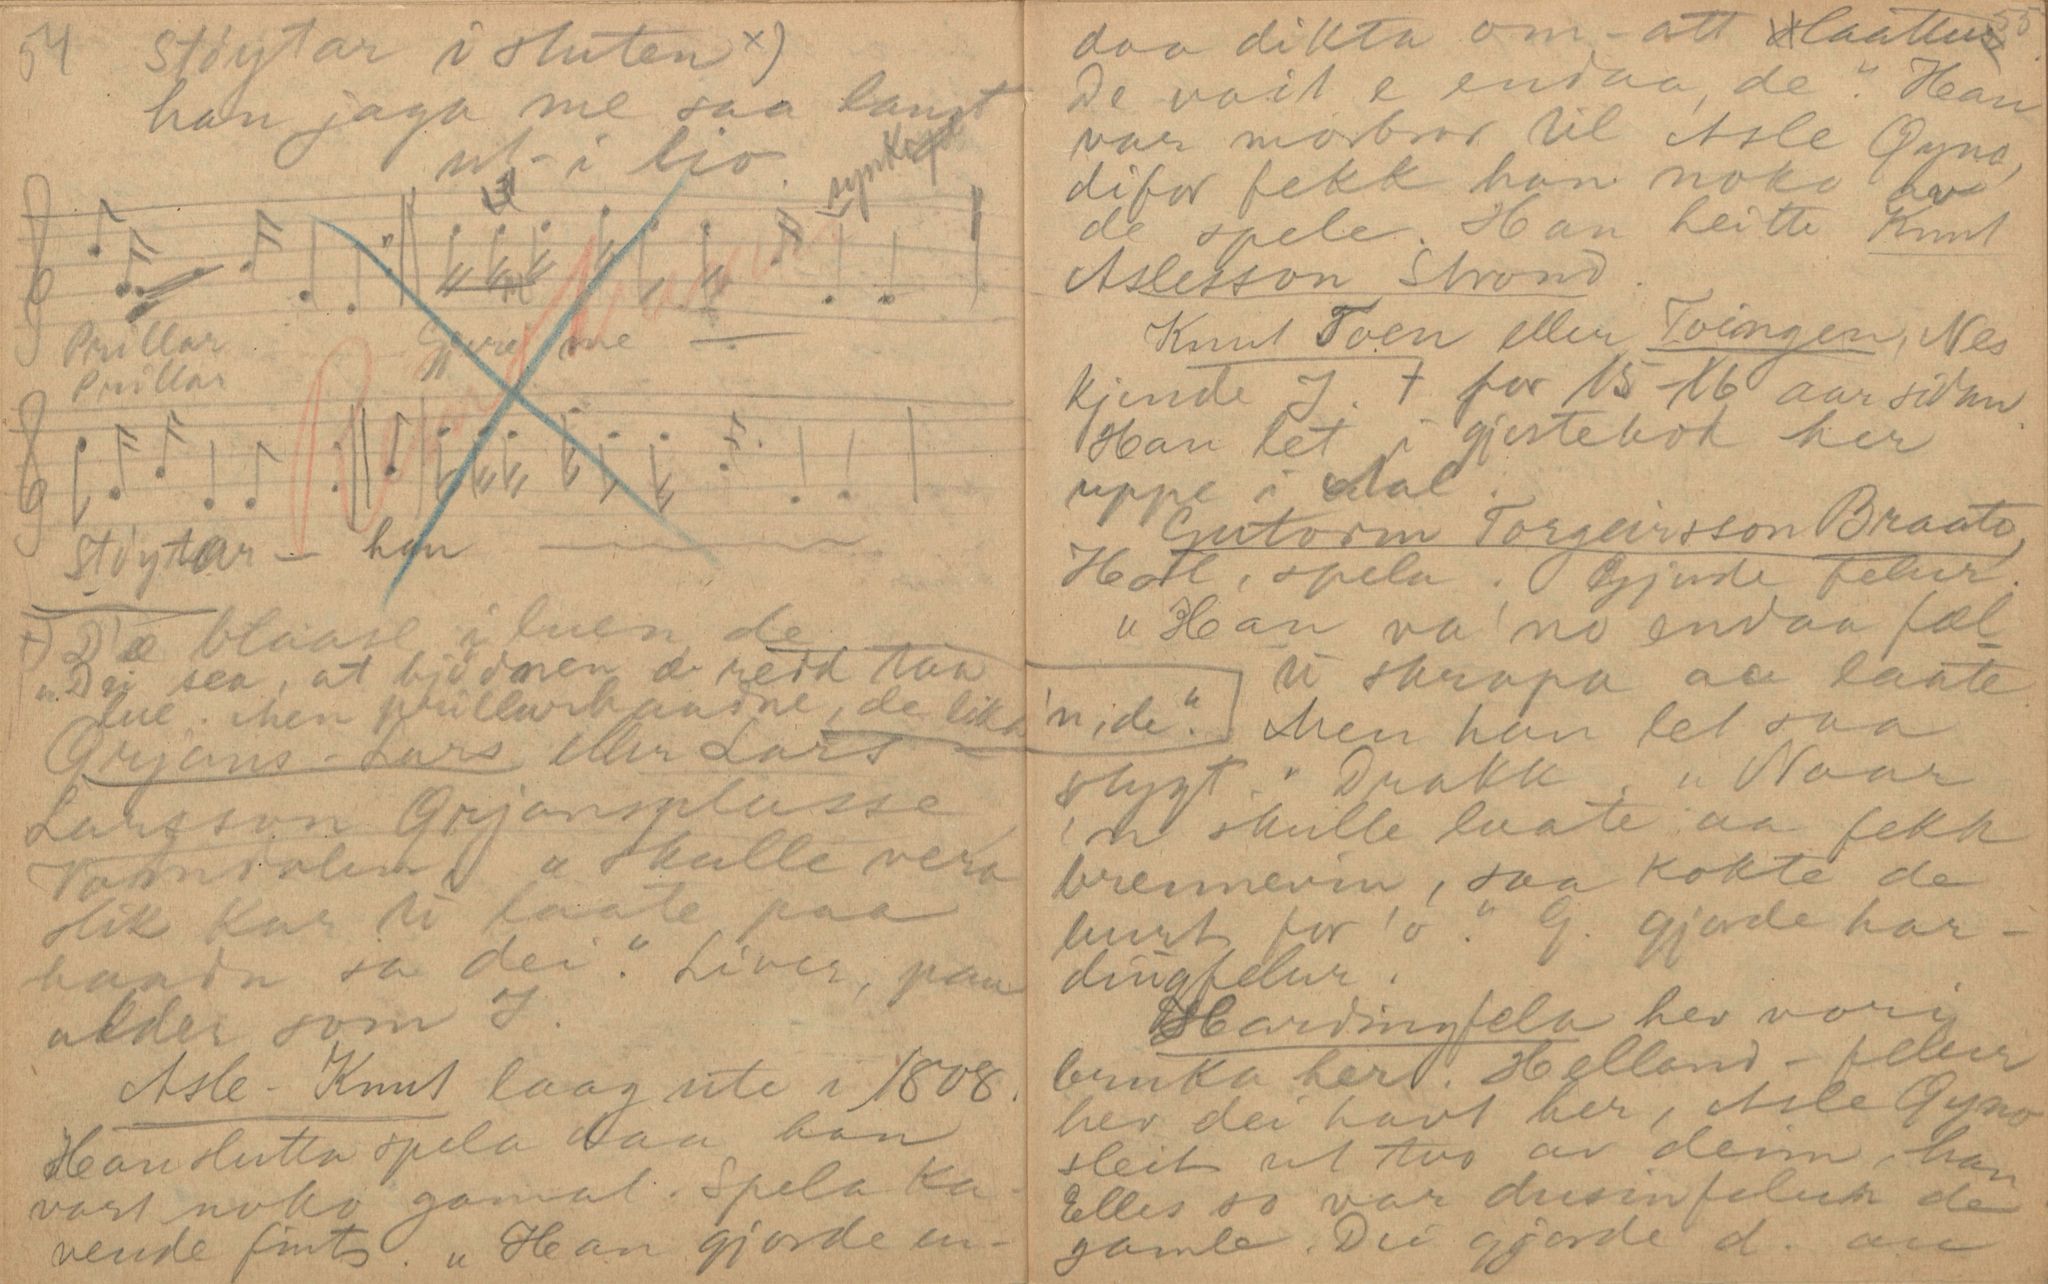 54
Støytar i sluten x)
han jaga me saa langt
ut - i lio.
synkope
Prillar
Prillar
Gjure me —
Reinskrive
Støytar — han —
+) D'æ blaase i luen de
"Dei sea, at bjødnen æ redd taa
lue. Men prillarhaadne, de lika
'n, de".
Ørjans-Lars eller Lars
Larsson Ørjansplasse,
Votndalen, "skulle vera
slik kar ti laate paa
haadn sa dei". Liver, paa
alder som J.
Asle-Knut laag ute i 1808.
Han slutta spela daa han
vart noko gamal. Spela ka-
vende fint. "Han gjorde en-
55
daa dikta om - att slaattur
De vait e endaa, de". Han
var morbror til Asle Gyno,
difor fekk han noko av
de spele. Han heitte Knut
Aslesson Strond.
Knut Toen eller Toingen, Nes
kjende J. + for 15-16 aar sidan
Han let i gjestebod her
uppe i Aal.
Gutorm Torgeirsson Braato,
Hol, spela. Gjorde felur.
"Han va' no endaa fæl
ti skrapa aa laate
Men han let saa
stygt." Drakk. "Naar
'n skulle laate aa fekk
brennevin, saa kokte de
burt for 'o." G. gjorde har-
dingfelur.
Hardingfela hev vori
bruka her. Helland-felur
hev dei havt her, Asle Gyno
sleit ut tvo av deim, han
Elles so var dusinfelur de
gamle. Dei gjorde d. au